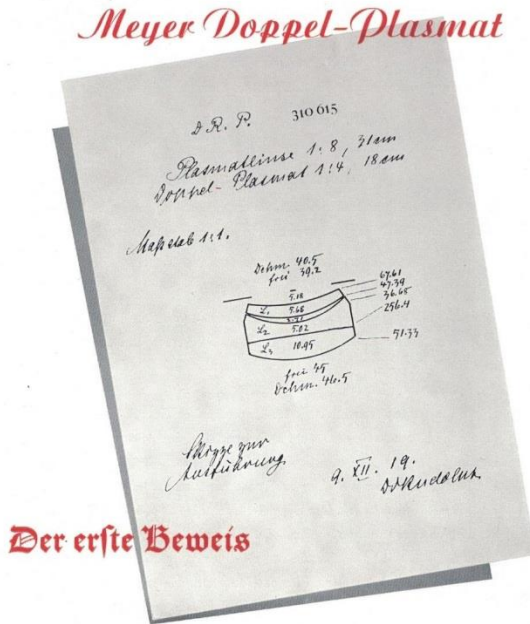 Meyer Doppel-Plasmat
D. R. P. 310 615
Plasmatlinse 1:8, 31 cm
Doppel-Plasmat 1:4, 18 cm
Maßstab 1:1.
Dchm. 40.5
frei 39.2
67.61
47.39
36.65
256.4
51.33
5.18
L₁ 5.68
L₂ 5.02
L₃ 10.95
frei 45
Dchm. 46.5
Skizze zur
Ausführung
9. XII. 19.
Dr Rudolph
Der erſte Beweis